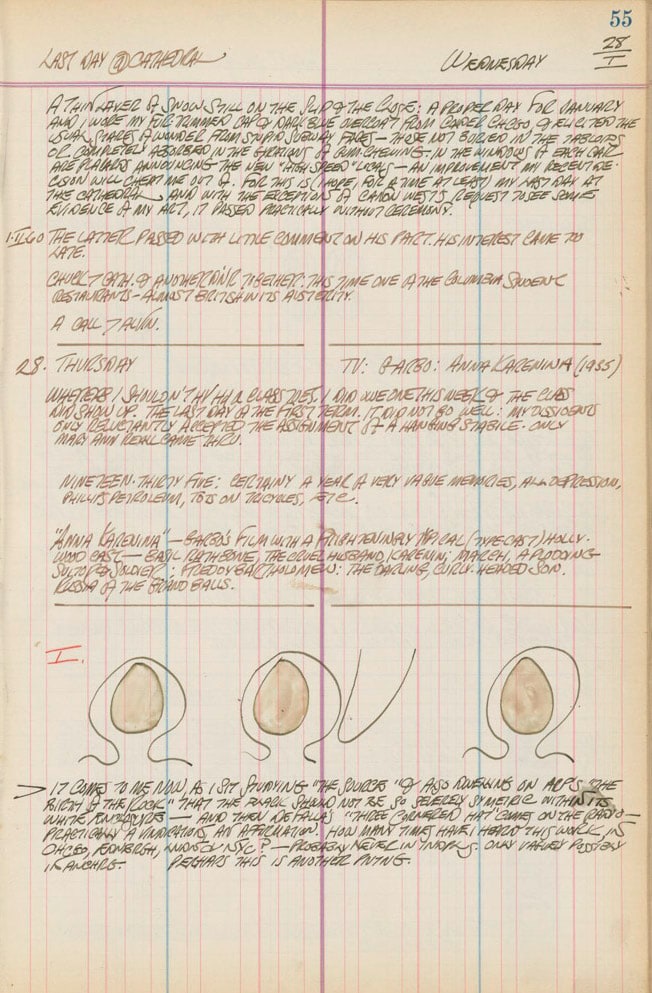 55
LAST DAY @ CATHEDRAL WEDNESDAY 28/I
A THIN LAYER OF SNOW STILL ON THE SLIP OF THE CLOSE: A PROPER DAY FOR JANUARY
AND I WORE MY FUR TRIMMED CAP & DARK BLUE OVERCOAT FROM & ELICITED THE
USUAL STARES OF WONDER FROM STUPID SUBWAY FACES — THOSE NOT BURIED IN THE TABLOIDS
OR COMPLETELY ABSORBED IN THE GYRATIONS OF GUM-CHEWING. IN THE WINDOWS OF EACH CAR
ARE PLACARDS ANNOUNCING THE NEW "HIGH SPEED" LOCALS — AN IMPROVEMENT MY RECENT DE-
CISION WILL CHEAT ME OUT OF. FOR THIS IS (I HOPE, FOR A TIME AT LEAST) MY LAST DAY AT
THE CATHEDRAL AND WITH THE EXCEPTION OF CANON WEST'S REQUEST TO SEE SOME
EVIDENCE OF MY ART, IT PASSED PRACTICALLY WITHOUT CEREMONY.
1·II·60 THE LATTER PASSED WITH LITTLE COMMENT ON HIS PART. HIS INTEREST CAME TO
LATE.
CHUCK 7 CATH. & ANOTHER DINR TOGETHER. THIS TIME ONE OF THE COLUMBIA STUDENT
RESTAURANTS — ALMOST BRITISH IN ITS AUSTERITY.
A CALL 7 ALVIN.
28. THURSDAY TV: GARBO: ANNA KARENINA (1935)
WHEREAS I SHOULDN'T HV HAD CLASS TUES. I DID OWE ONE THIS WEEK & THE CLASS
DID SHOW UP. THE LAST DAY OF THE FIRST TERM. IT DID NOT GO WELL: MY DISSIDENTS
ONLY RELUCTANTLY ACCEPTED THE ASSIGNMENT OF A HANGING STABILE. ONLY
MARY ANN CAME THRU.
NINETEEN-THIRTY FIVE: CERTAINLY A YEAR OF VERY VAGUE MEMORIES, ALL DEPRESSION,
PHILLIPS PETROLEUM, TOTS ON TRICYCLES, ETC.
"ANNA KARENINA" — GARBO'S FILM WITH A FRIGHTENINGLY TYPICAL (TYPE CAST) HOLLY-
WOOD CAST — BASIL RATHBONE, THE CRUEL HUSBAND, KARENIN; MARCH, A PLODDING
SUITOR & SOLDIER; FREDDY BARTHOLOMEW: THE DARLING, CURLY-HEADED SON.
RUSSIA OF THE GRAND BALLS.
I.
> IT COMES TO ME NOW, AS I SIT STUDYING "THE SOURCE" & ALSO DWELLING ON ARP'S "THE
BIRTH OF THE ROCK" THAT THE BLACK SHOULD NOT BE SO SEVERELY SYMETRIC WITHIN ITS
WHITE ENCLOSURE — AND THEN DE FALLA'S "THREE CORNERED HAT" COMES ON THE RADIO —
PRACTICALLY A VINDICATION, AN AFFIRMATION. HOW MANY TIMES HAVE I HEARD THIS WORK, IN
CHCGO, EDNBRGH, NYC? — PROBABLY NEVER IN ONLY VAGUELY POSSIBLY
IN ANCHRG. PERHAPS THIS IS ANOTHER PNTNG.